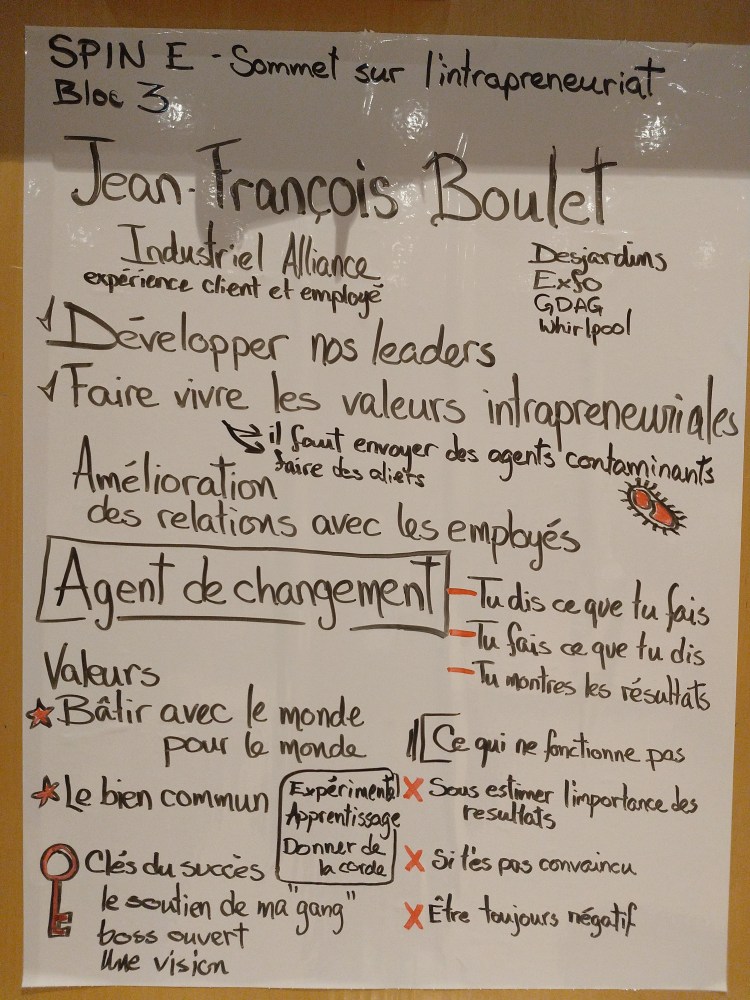 SPIN E - Sommet sur l'intrapreneuriat
Bloc 3
Jean-François Boulet
Industriel Alliance
expérience client et employé
Desjardins
Exfo
GDAG
Whirlpool
Développer nos leaders
Faire vivre les valeurs intrapreneuriales
il faut envoyer des agents contaminants
faire des aliers
Amélioration
des relations avec les employés
Agent de changement
- Tu dis ce que tu fais
- Tu fais ce que tu dis
- Tu montres les résultats
Valeurs
Bâtir avec le monde
pour le monde
Le bien commun
Expérimental
Apprentissage
Donner de
la corde
Clés du succès
le soutien de ma "gang"
boss ouvert
Une vision
Ce qui ne fonctionne pas
X Sous estimer l'importance des
resultats
X Si t'es pas convaincu
X Être toujours négatif